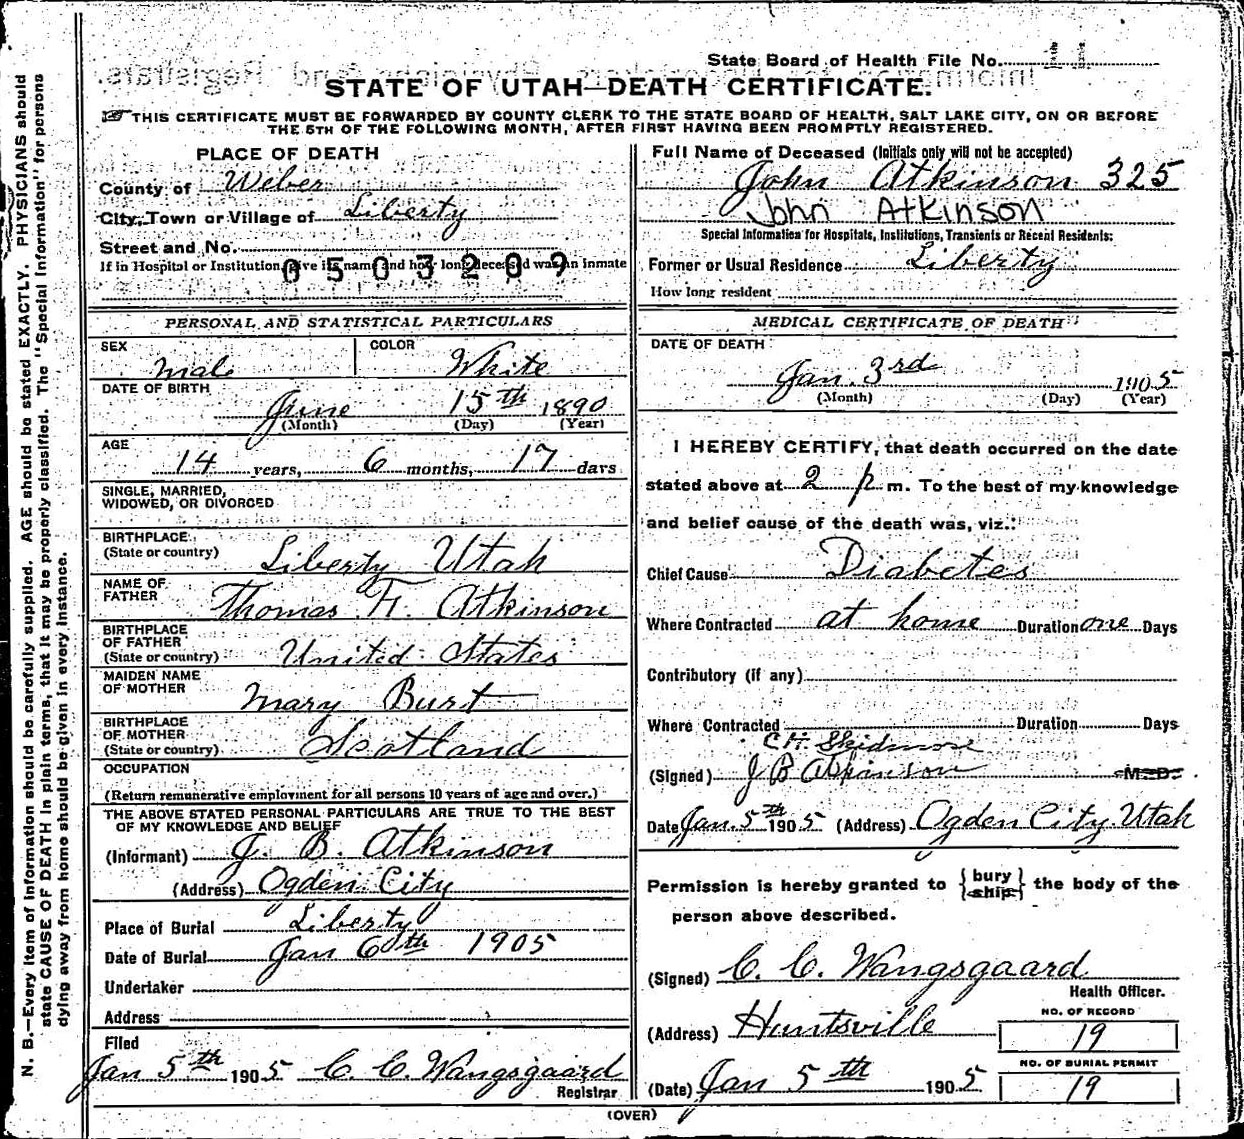 State Board of Health File No. 11
STATE OF UTAH—DEATH CERTIFICATE.
THIS CERTIFICATE MUST BE FORWARDED BY COUNTY CLERK TO THE STATE BOARD OF HEALTH, SALT LAKE CITY, ON OR BEFORE
THE 5TH OF THE FOLLOWING MONTH, AFTER FIRST HAVING BEEN PROMPTLY REGISTERED.
N. B.—Every item of information should be carefully supplied. AGE should be stated EXACTLY. PHYSICIANS should
state CAUSE OF DEATH in plain terms, that it may be properly classified. The "Special Information" for persons
dying away from home should be given in every instance.
PLACE OF DEATH
County of Weber
City, Town or Village of Liberty
Street and No.
If in Hospital or Institution, give its name and how long deceased was an inmate
0503299
PERSONAL AND STATISTICAL PARTICULARS
SEX Male COLOR White
DATE OF BIRTH
June 15th 1890
(Month) (Day) (Year)
AGE
14 years, 6 months, 17 days
SINGLE, MARRIED,
WIDOWED, OR DIVORCED
BIRTHPLACE
(State or country) Liberty Utah
NAME OF
FATHER Thomas F. Atkinson
BIRTHPLACE
OF FATHER
(State or country) United States
MAIDEN NAME
OF MOTHER Mary Burt
BIRTHPLACE
OF MOTHER
(State or country) Scotland
OCCUPATION
(Return remunerative employment for all persons 10 years of age and over.)
THE ABOVE STATED PERSONAL PARTICULARS ARE TRUE TO THE BEST
OF MY KNOWLEDGE AND BELIEF
(Informant) J. B. Atkinson
(Address) Ogden City
Place of Burial Liberty
Date of Burial Jan 6th 1905
Undertaker
Address
Filed
Jan 5th 1905 C. C. Wangsgaard
Registrar
Full Name of Deceased (Initials only will not be accepted)
John Atkinson 325
John Atkinson
Special Information for Hospitals, Institutions, Transients or Recent Residents:
Former or Usual Residence Liberty
How long resident
MEDICAL CERTIFICATE OF DEATH
DATE OF DEATH
Jan. 3rd 1905
(Month) (Day) (Year)
I HEREBY CERTIFY, that death occurred on the date
stated above at 2 p m. To the best of my knowledge
and belief cause of the death was, viz.:
Chief Cause Diabetes
Where Contracted at home Duration one Days
Contributory (if any)
Where Contracted Duration Days
C H. Skidmore
(Signed) J B Atkinson M. D.
Date Jan. 5th 1905 (Address) Ogden City Utah
Permission is hereby granted to {bury ship} the body of the
person above described.
(Signed) C. C. Wangsgaard
Health Officer.
(Address) Huntsville
NO. OF RECORD
19
NO. OF BURIAL PERMIT
19
(Date) Jan 5th 1905
(OVER)